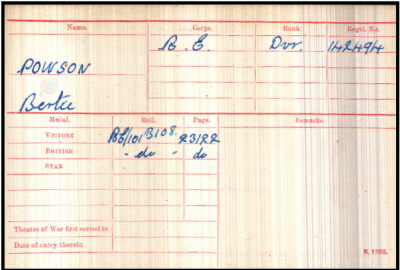 Name. Corps. Rank. Regtl. No.
R. E. Dvr. 142494
POWSON
Bertie
Medal. Roll. Page. Remarks.
VICTORY RE/101 B108. 23122
BRITISH - do - do
STAR
Theatre of War first served in
Date of entry therein
K. 1380.